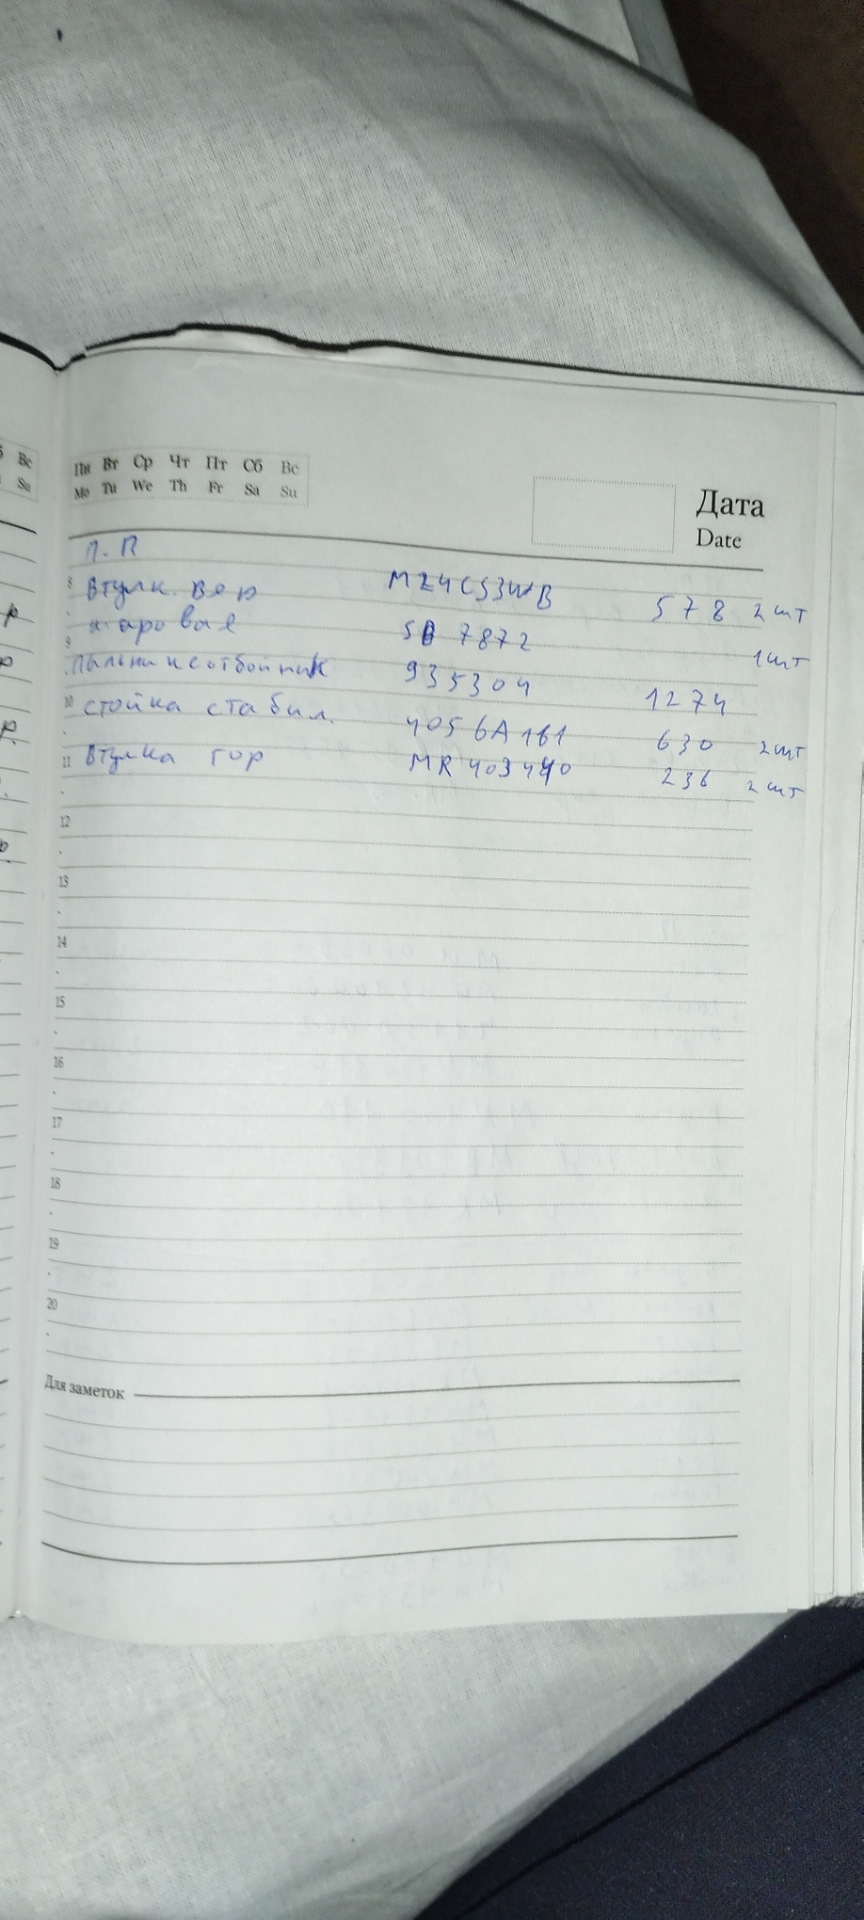 Вс
Su
Пн Вт Ср Чт Пт Сб Вс
Mo Tu We Th Fr Sa Su
Дата
Date
П.П
8 втулк. вер MZ4C53WB 578 2 шт
шаровые SB 7872 1 шт
9
пыльник отбойник 935304 1274
10 стойка стабил. 4056A161 630 2 шт
11 втулка гор MR403440 236 2 шт
12
13
14
15
16
17
18
19
20
Для заметок